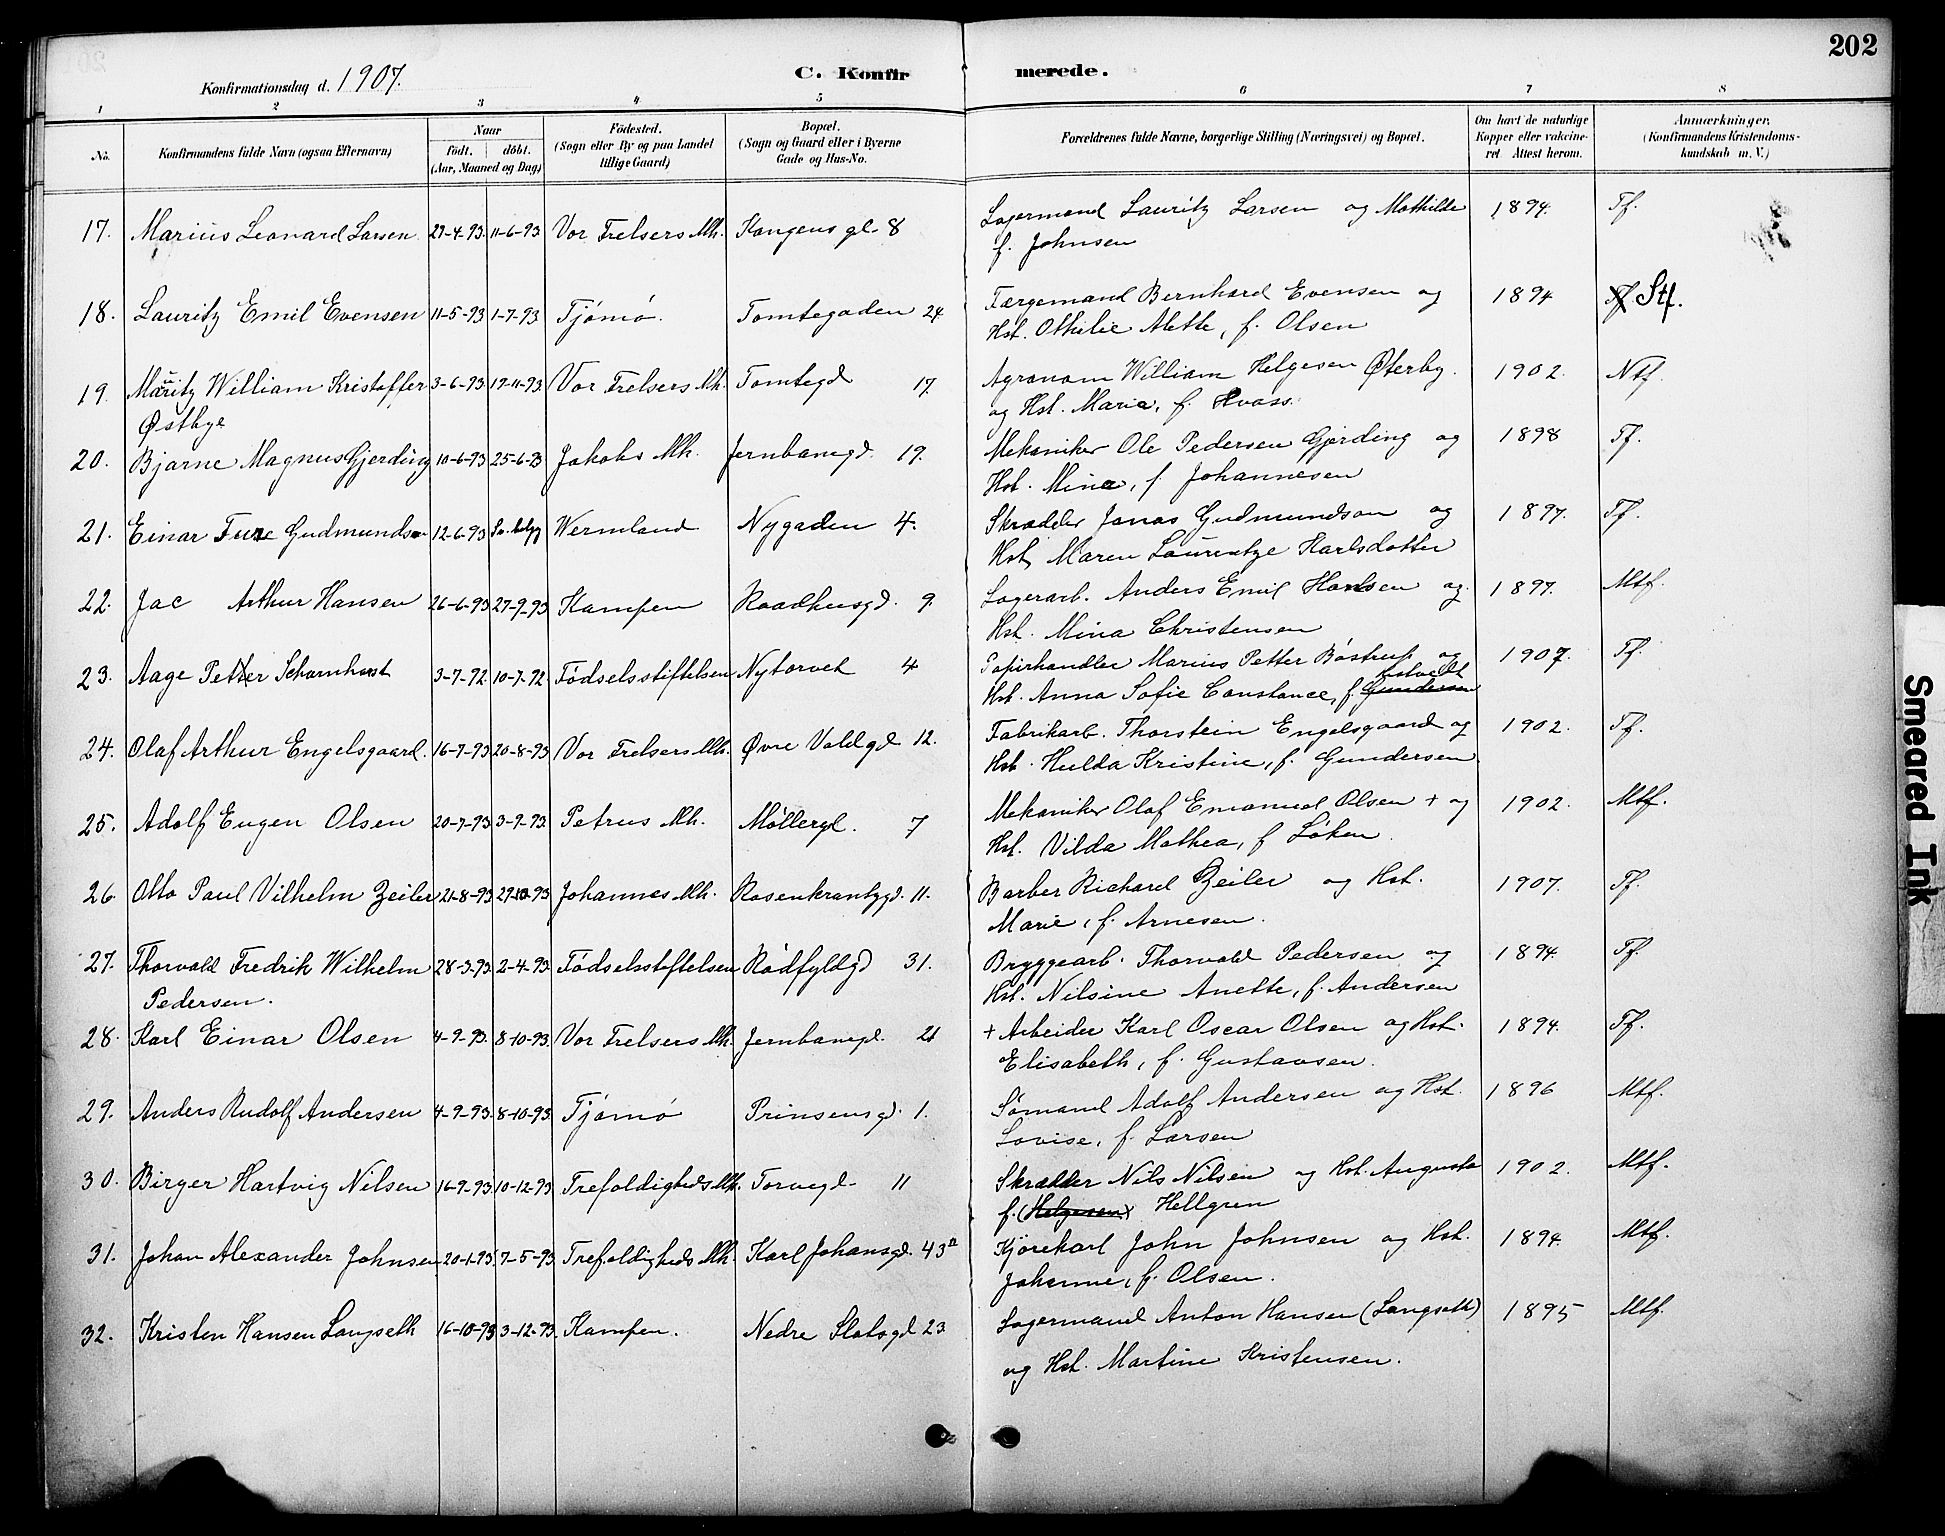 202
Konfirmationsdag d. 1907. C. Konfirmerede.
1 2 3 4 5 6 7 8
No. Konfirmandens fulde Navn (ogsaa Efternavn) Naar födt. döbt. (Aar, Maaned og Dag) Födested. (Sogn eller By og paa Landet tillige Gaard) Bopæl. (Sogn og Gaard eller i Byerne Gade og Hus-No. Forældrenes fulde Navne, borgerlige Stilling (Næringsvei) og Bopæl. Om havt de naturlige Kopper eller vakcineret Attest herom. Anmærkninger. (Konfirmandens Kristendomskundskab m. V.)
17. Marius Leonard Larsen 29-4-93. 11-6-93 Vor Frelsers Mh. Kongens gd. 8 Lagermand Lauritz Larsen og Mathilde 1894. Tf.
f. Johnsen
18. Lauritz Emil Evensen 11-5-93 1-7-93 Tjömö. Tomtegaden 24 Færgemand Bernhard Evensen og 1894 Tf Stf.
Hst. Othilie Alette, f. Olsen
19. Mauritz William Kristoffer 3-6-93 19-11-93 Vor Frelsers Mh. Tomtegd 17. Agronom William Helgesen Østerby 1902. Ntf.
Østbye og Hst. Marie, f. Kvass.
20. Bjarne Magnus Gjerding 10-6-93 25-6-93 Jakobs Mh. Jernbanegd. 19. Mekaniker Ole Pedersen Gjerding og 1898 Tf.
Hst. Mina, f. Johannesen
21. Einar Ture Gudmundson 12-6-93 Wermland Nygaden 4. Skrædder Jonas Gudmundson og 1897. Tf.
Hst. Maren Laurentze Karlsdotter
22. Jac Arthur Hansen 26-6-93 27-9-93 Kampen Raadhusgd. 9. Lagerarb. Anders Emil Hansen og 1897. Mtf.
Hst. Mina Christensen
23. Aage Petter Scharnhorst 3-7-92 10-7-92 Födselsstiftelsen Nytorvet 4 Papirhandler Marius Petter Böstrup og 1907. Tf.
Hst. Anna Sofie Constance, f. Gundersen
24. Olaf Arthur Engelsgaard. 16-7-93 20-8-93 Vor Frelsers Mh. Øvre Voldgd 12. Fabrikarb. Thorstein Engelsgaard og 1902. Tf.
Hst. Hulda Kristine, f. Gundersen
25. Adolf Eugen Olsen 20-7-93 3-9-93. Petrus Mh. Möllergd. 7 Mekaniker Olaf Emanuel Olsen + og 1902. Mtf.
Hst. Vilda Mathea, f Löken.
26. Otto Paul Vilhelm Zeiler 21-8-93 29-10-93 Johannes Mh. Rosenkrantzgd. 11. Barber Richard Zeiler og Hst. 1907. Tf.
Marie, f. Arnesen.
27. Thorvald Fredrik Wilhelm 28-3-93. 2-4-93. Födselsstiftelsen Rödfyldgd 31. Bryggearb. Thorvald Pedersen og 1894. Tf.
Pedersen. Hst. Nilsine Anette, f. Andersen
28. Karl Einar Olsen 4-9-93. 8-10-93. Vor Frelsers Mh. Jernbanegd. 21 + Arbeider Karl Oscar Olsen og Hst. 1894. Tf.
Elisabeth, f. Gustavsen.
29. Anders Rudolf Andersen 4-9-93. 8-10-93. Tjömö Prinsensgd. 1. Sömand Adolf Andersen og Hst. 1896 Mtf.
Lovise, f. Larsen
30. Birger Hartvig Nilsen 16-9-93. 10-12-93 Trefoldigheds Mh. Torvegd. 11 Skrædder Nils Nilsen og Hst. Augusta 1902. Mtf.
f. (Helgesen) Hellgren
31. Johan Alexander Johnsen 20-1-93. 7-5-93 Trefoldigheds Mh. Karl Johansgd. 43a Kjörekarl John Johnsen og Hst. 1894. Mtf.
Johanne, f. Olsen.
32. Kristen Hansen Langseth 16-10-93 3-12-93. Kampen. Nedre Slotsgd 23. Lagermand Anton Hansen (Langseth) 1895 Mtf.
og Hst. Martine Kristensen.
Smeared Ink